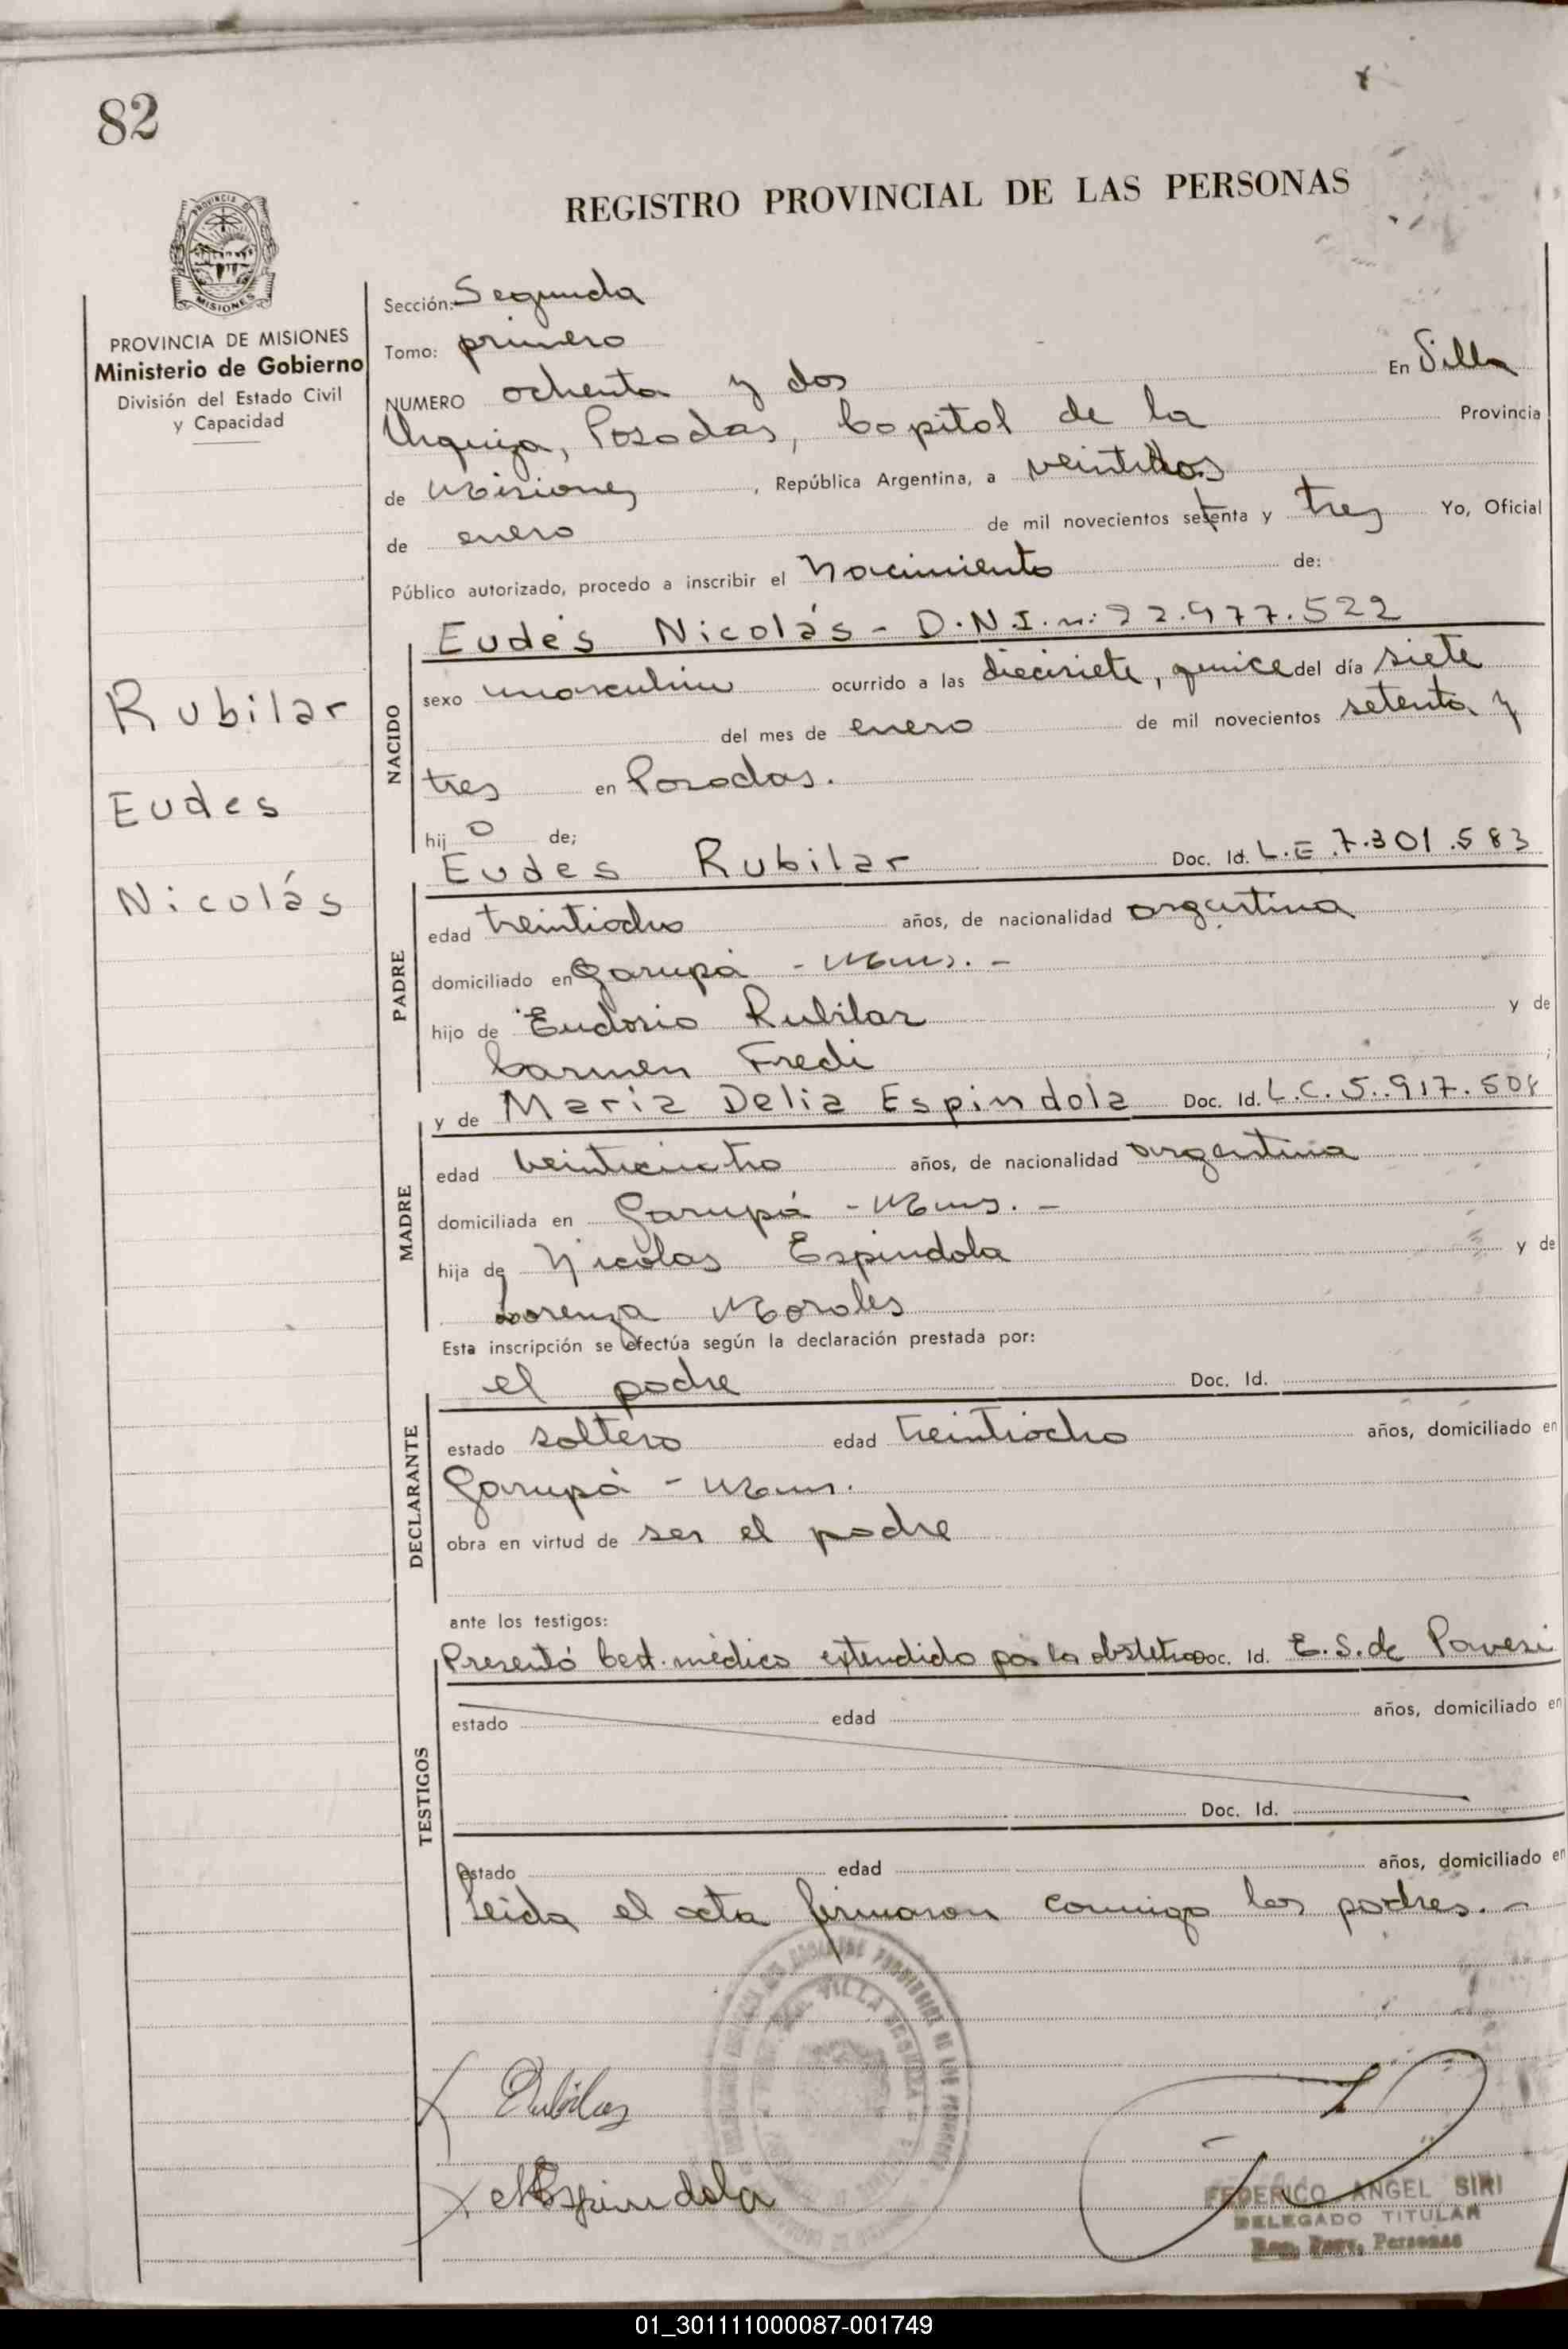 82
REGISTRO PROVINCIAL DE LAS PERSONAS
PROVINCIA DE
MISIONES
PROVINCIA DE MISIONES
Ministerio de Gobierno
División del Estado Civil
y Capacidad
Rubilar
Eudes
Nicolás
Sección: Segunda
Tomo: primero
NUMERO ochenta y dos En Villa
Urquiza, Posadas, Capital de la Provincia
de Misiones, República Argentina, a veintidos
de enero de mil novecientos setenta y tres Yo, Oficial
Público autorizado, procedo a inscribir el Nacimiento de:
NACIDO
Eudes Nicolás - D.N.I. n: 22.977.522
sexo masculino ocurrido a las diecisiete, quince del día siete
del mes de enero de mil novecientos setenta y
tres en Posadas.
hij o de;
PADRE
Eudes Rubilar Doc. Id. L.E. 7.301.583
edad treintiocho años, de nacionalidad argentina
domiciliado en Garupá - Mnes. -
hijo de Eudosio Rubilar y de
Carmen Fredi ;
MADRE
y de María Delia Espindola Doc. Id. L.C. 5.917.508
edad veinticuatro años, de nacionalidad argentina
domiciliada en Garupá - Mnes. -
hija de Nicolas Espindola y de
Lorenza Morales
Esta inscripción se efectúa según la declaración prestada por:
DECLARANTE
el padre Doc. Id.
estado soltero edad treintiocho años, domiciliado en
Garupá - Mnes.
obra en virtud de ser el padre
ante los testigos:
TESTIGOS
Presentó Cert. médico extendido por la obstetra Doc. Id. E. S. de Pavesi
estado edad años, domiciliado en
Doc. Id.
estado edad años, domiciliado en
Leida el acta firmaron conmigo los padres. -
Rubilar
MEspindola
FEDERICO ANGEL SIRI
DELEGADO TITULAR
Reg. Prov. Personas
01_301111000087-001749